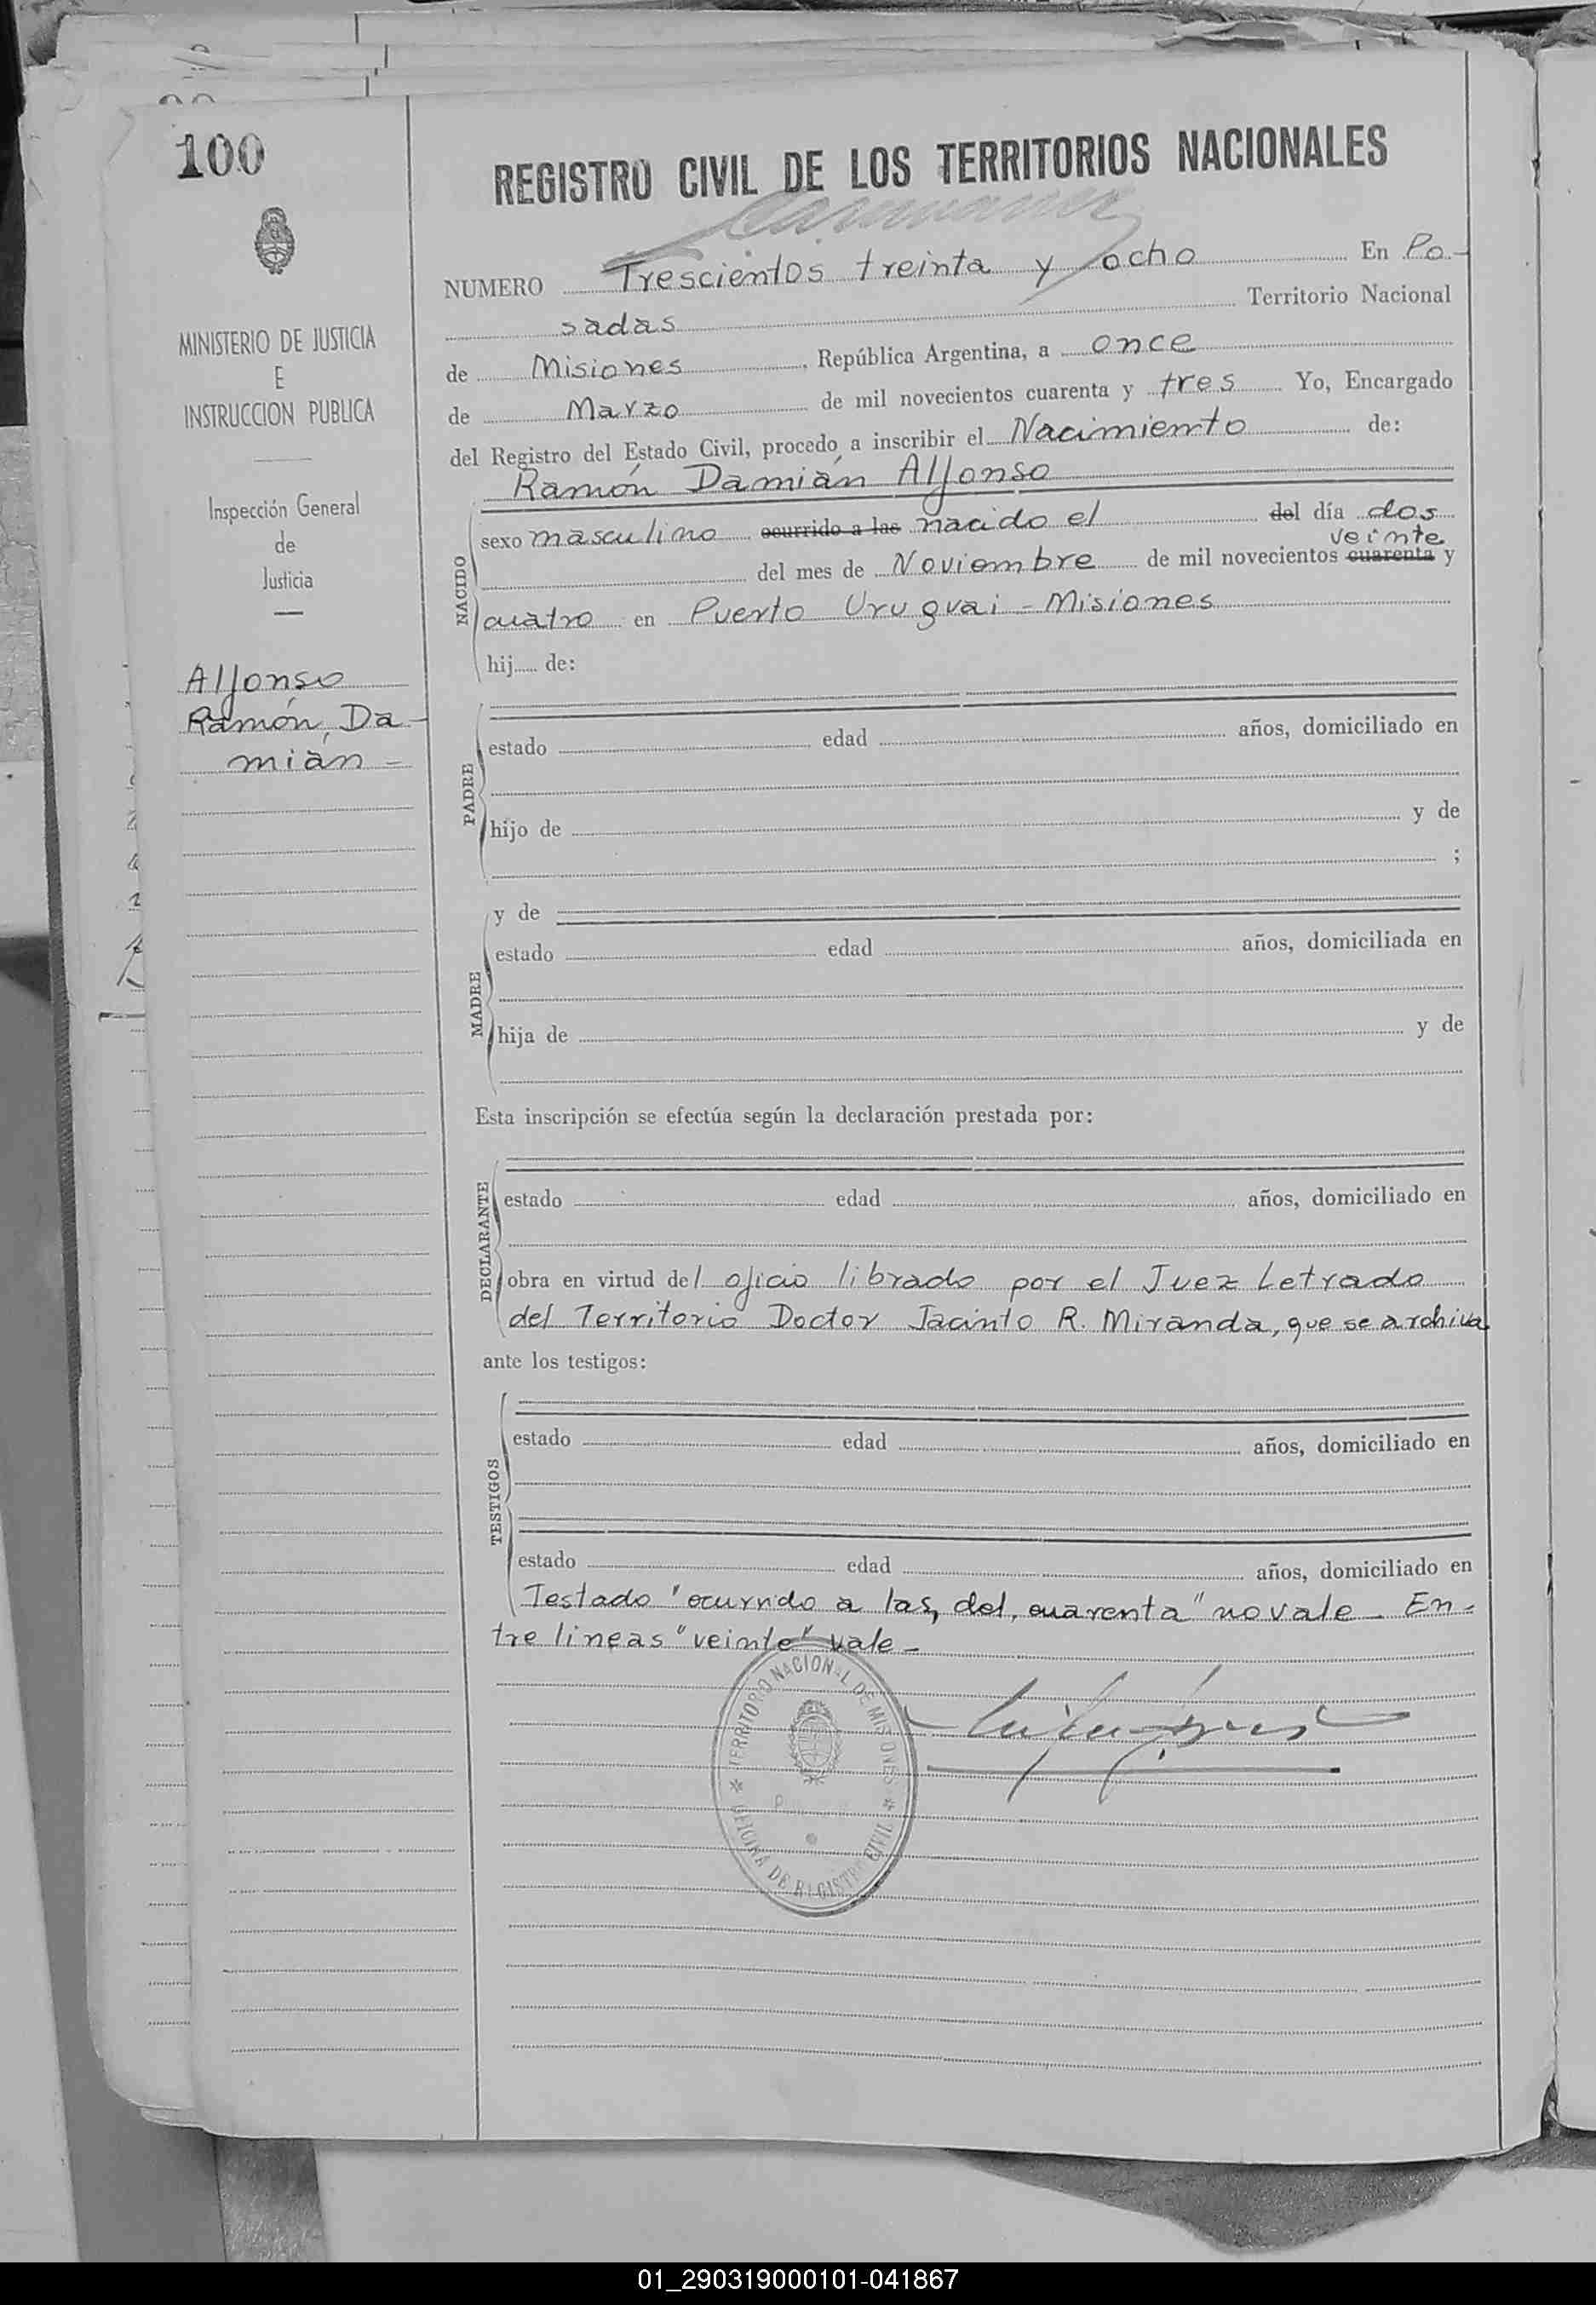 100
MINISTERIO DE JUSTICIA
E
INSTRUCCION PUBLICA
Inspección General
de
Justicia
Alfonso
Ramón, Da-
mián -
REGISTRO CIVIL DE LOS TERRITORIOS NACIONALES
NUMERO Trescientos treinta y ocho En Po-
sadas Territorio Nacional
de Misiones, República Argentina, a once
de Marzo de mil novecientos cuarenta y tres Yo, Encargado
del Registro del Estado Civil, procedo a inscribir el Nacimiento de:
Ramón Damián Alfonso
NACIDO
sexo masculino ocurrido a las nacido el del día dos
veinte
del mes de Noviembre de mil novecientos cuarenta y
cuatro en Puerto Uruguai - Misiones
hij..... de:
PADRE
estado edad años, domiciliado en
hijo de y de
;
MADRE
y de
estado edad años, domiciliada en
hija de y de
Esta inscripción se efectúa según la declaración prestada por:
DECLARANTE
estado edad años, domiciliado en
obra en virtud del oficio librado por el Juez Letrado
del Territorio Doctor Jacinto R. Miranda, que se archiva
ante los testigos:
TESTIGOS
estado edad años, domiciliado en
estado edad años, domiciliado en
Testado "ocurrido a las, del, cuarenta" no vale - En-
tre lineas "veinte" vale -
TERRITORIO NACIONAL DE MISIONES
OFICINA DE REGISTRO CIVIL
01_290319000101-041867